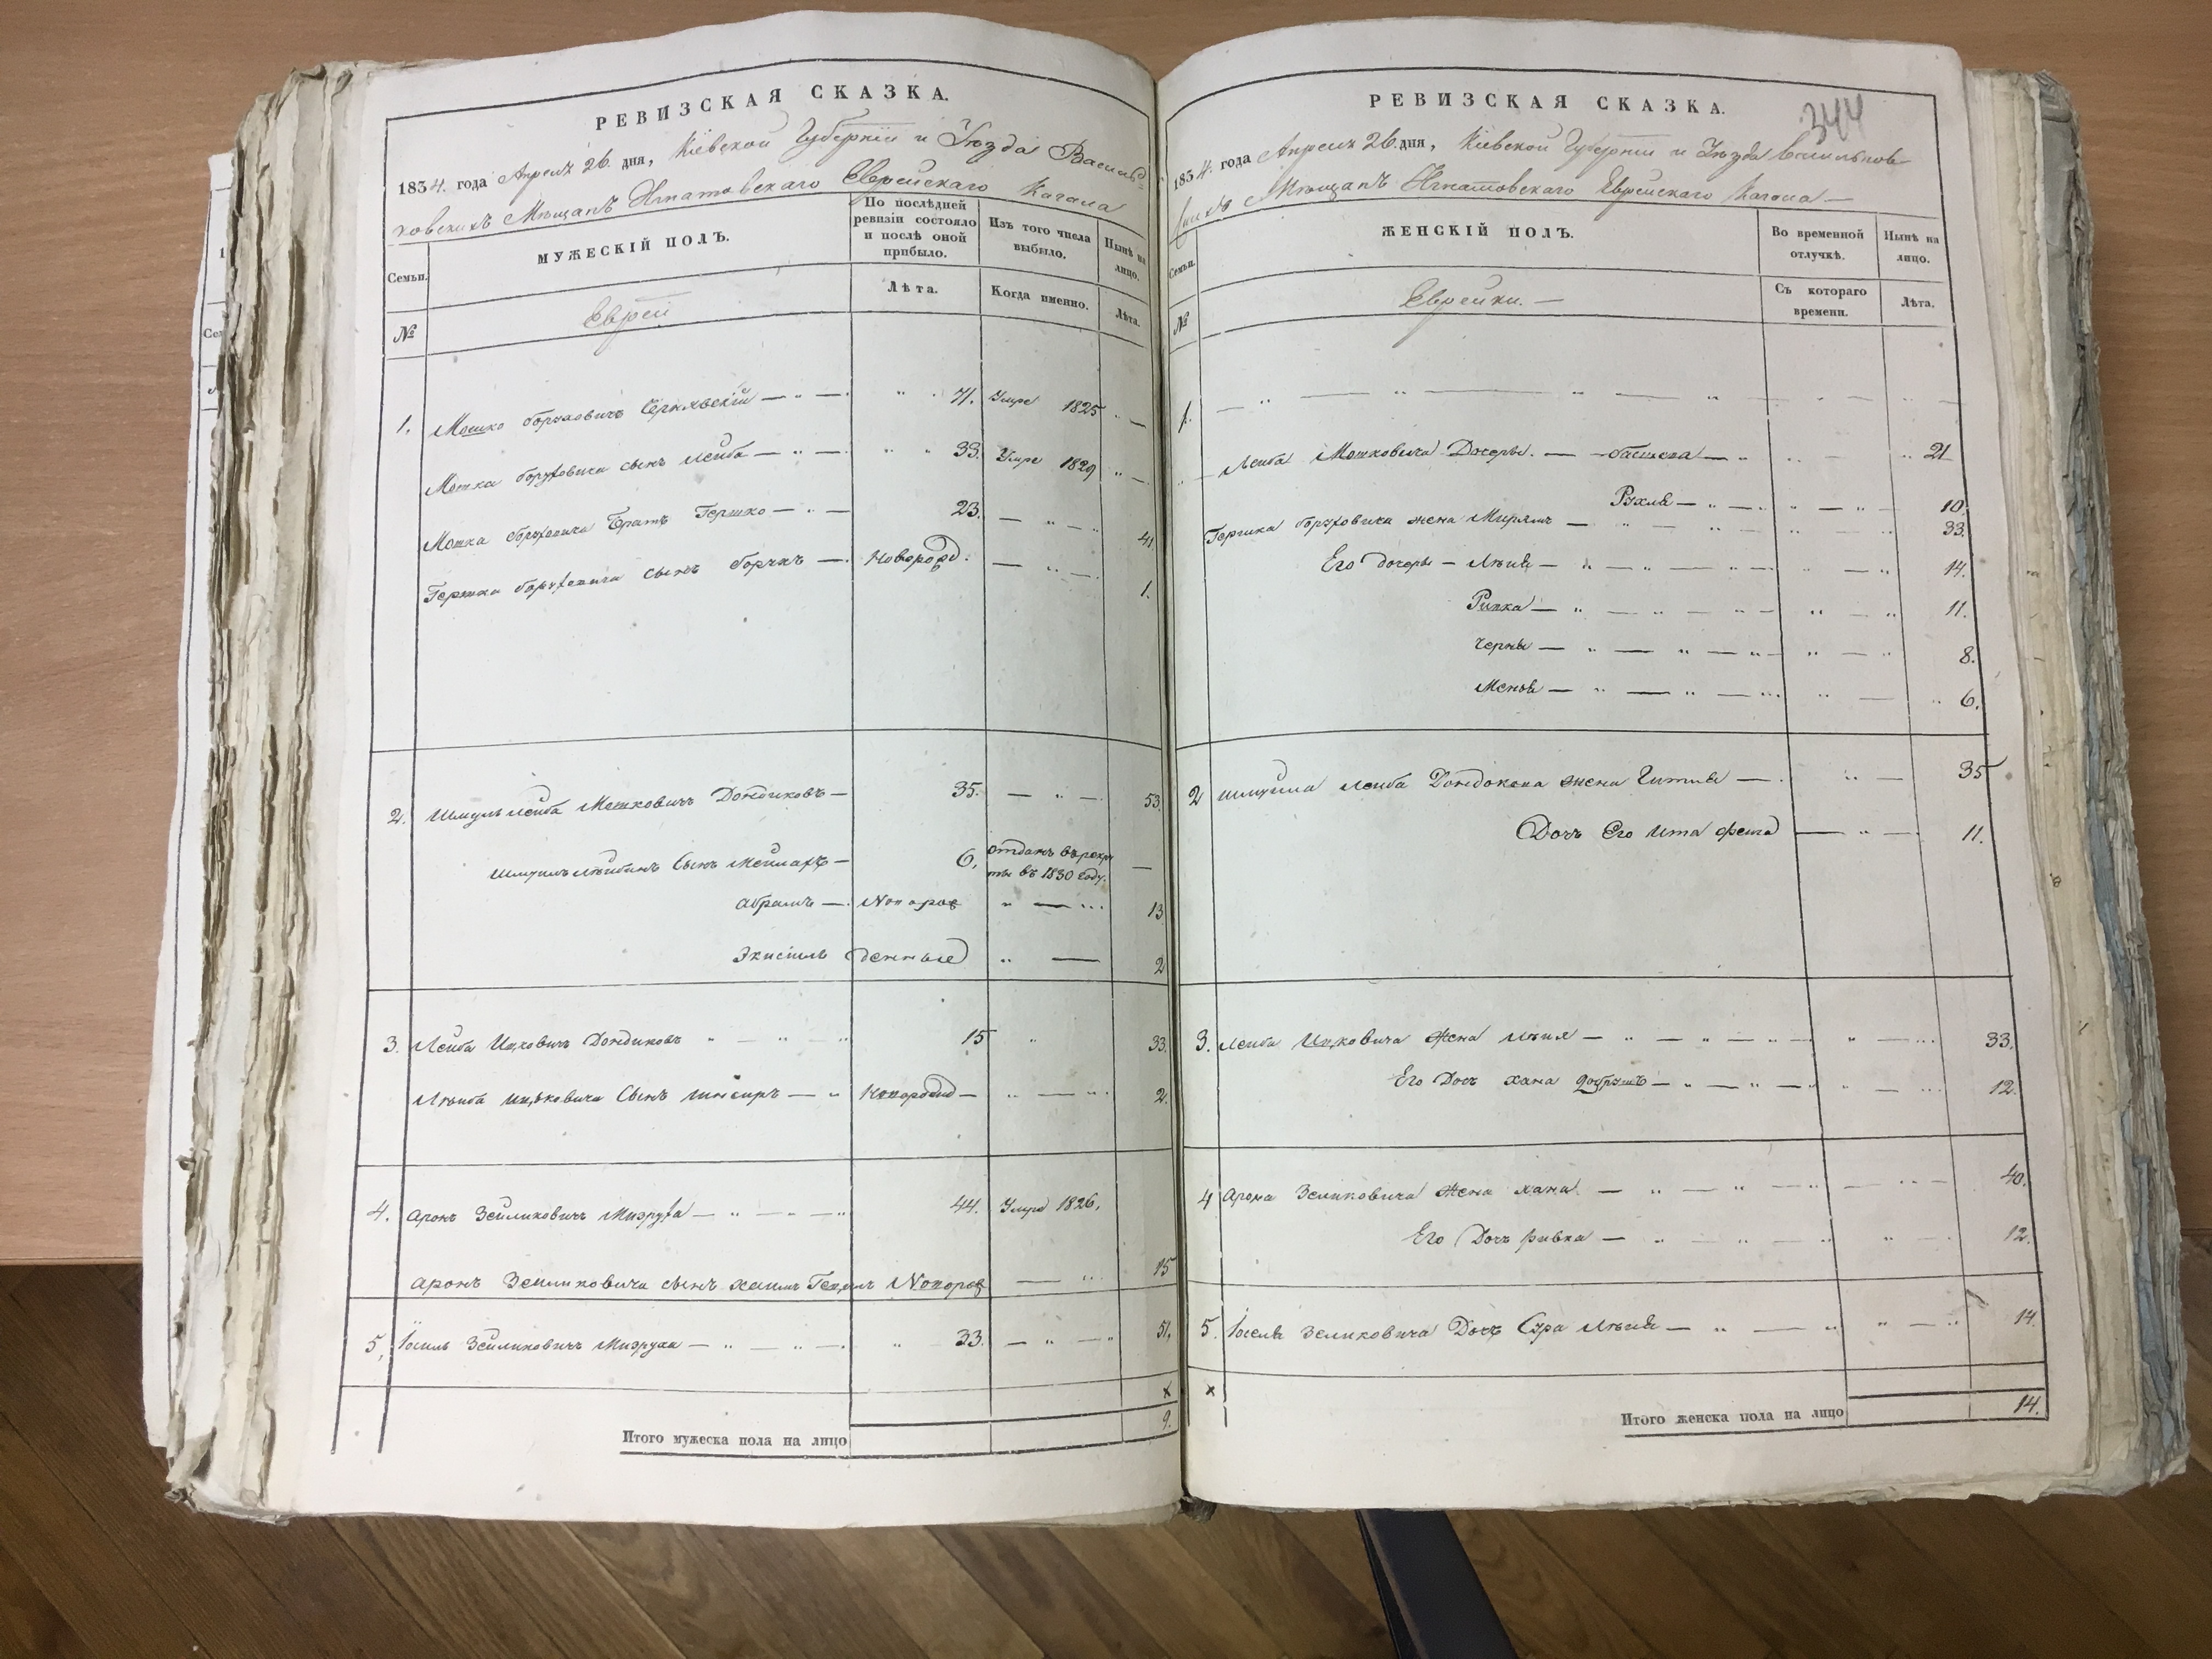 РЕВИЗСКАЯ СКАЗКА.
1834. года Апреля 26. дня, Кіевской Губерніи и Уѣзда Василь-
ковскихъ Мѣщанъ Игнатовскаго Еврейскаго Кагала
Семьи.
МУЖЕСКІЙ ПОЛЪ.
По послѣдней ревизіи состояло и послѣ оной прибыло.
Изъ того числа выбыло.
Нынѣ на лицо.
№
Еврей
Лѣта.
Когда именно.
Лѣта.
1. Мошко Боруховичъ 71. Умре 1825
Мошка Боруховича сынъ Лейба 33. Умре 1829
Мошка Боруховича Братъ Гершко 23. 41.
Гершка Боруховича сынъ Борухъ Новорожд. 1.
2. Шмуль Лейба Мошковичъ Дондиковъ 35. 53.
Сынъ Мейлахъ 6. отданъ в рекру
ты въ 1830 году.
Абрамъ Новорож 13
Экисиль денные 2
3. Лейба Ицковичъ Дондиковъ 15 33.
Лейба Ицьковича Сынъ 2.
4. Аронъ Зейликовичъ Мизруха 44. Умре 1826.
Аронъ Зейликовича сынъ Хаимъ Новорож 15
5. Іосиль Зейликовичъ Мизруха 33. 51.
х
Итого мужеска пола на лицо 9.
РЕВИЗСКАЯ СКАЗКА.
344
1834 года Апреля 26. дня, Кіевской Губерніи и Уѣзда Васильков-
скихъ Мѣщанъ Игнатовскаго Еврейскаго Кагала
Семьи.
ЖЕНСКІЙ ПОЛЪ.
Во временной отлучкѣ.
Нынѣ на лицо.
№
Еврейки.
Съ котораго времени.
Лѣта.
1.
Лейба Мошковича Дочеры. Басшева 21
Рухля 10.
Гершка Боруховича жена Мирямъ 33.
Его дочеры Лѣия 14.
Ривка 11.
Черны 8.
Менья 6.
2 Шмуила Лейба Дондокова жена Гитля 35
Дочь Его Ита Фейга 11.
3. Лейба Ицковича Жена 33.
Его Дочь Хана 12.
4 Арона Зеликовича Жена Хана 40.
Его Дочь Ривка 12.
5. Іоселя Зеликовича Дочь Сура Лѣия 14.
х
Итого женска пола на лицо 14.